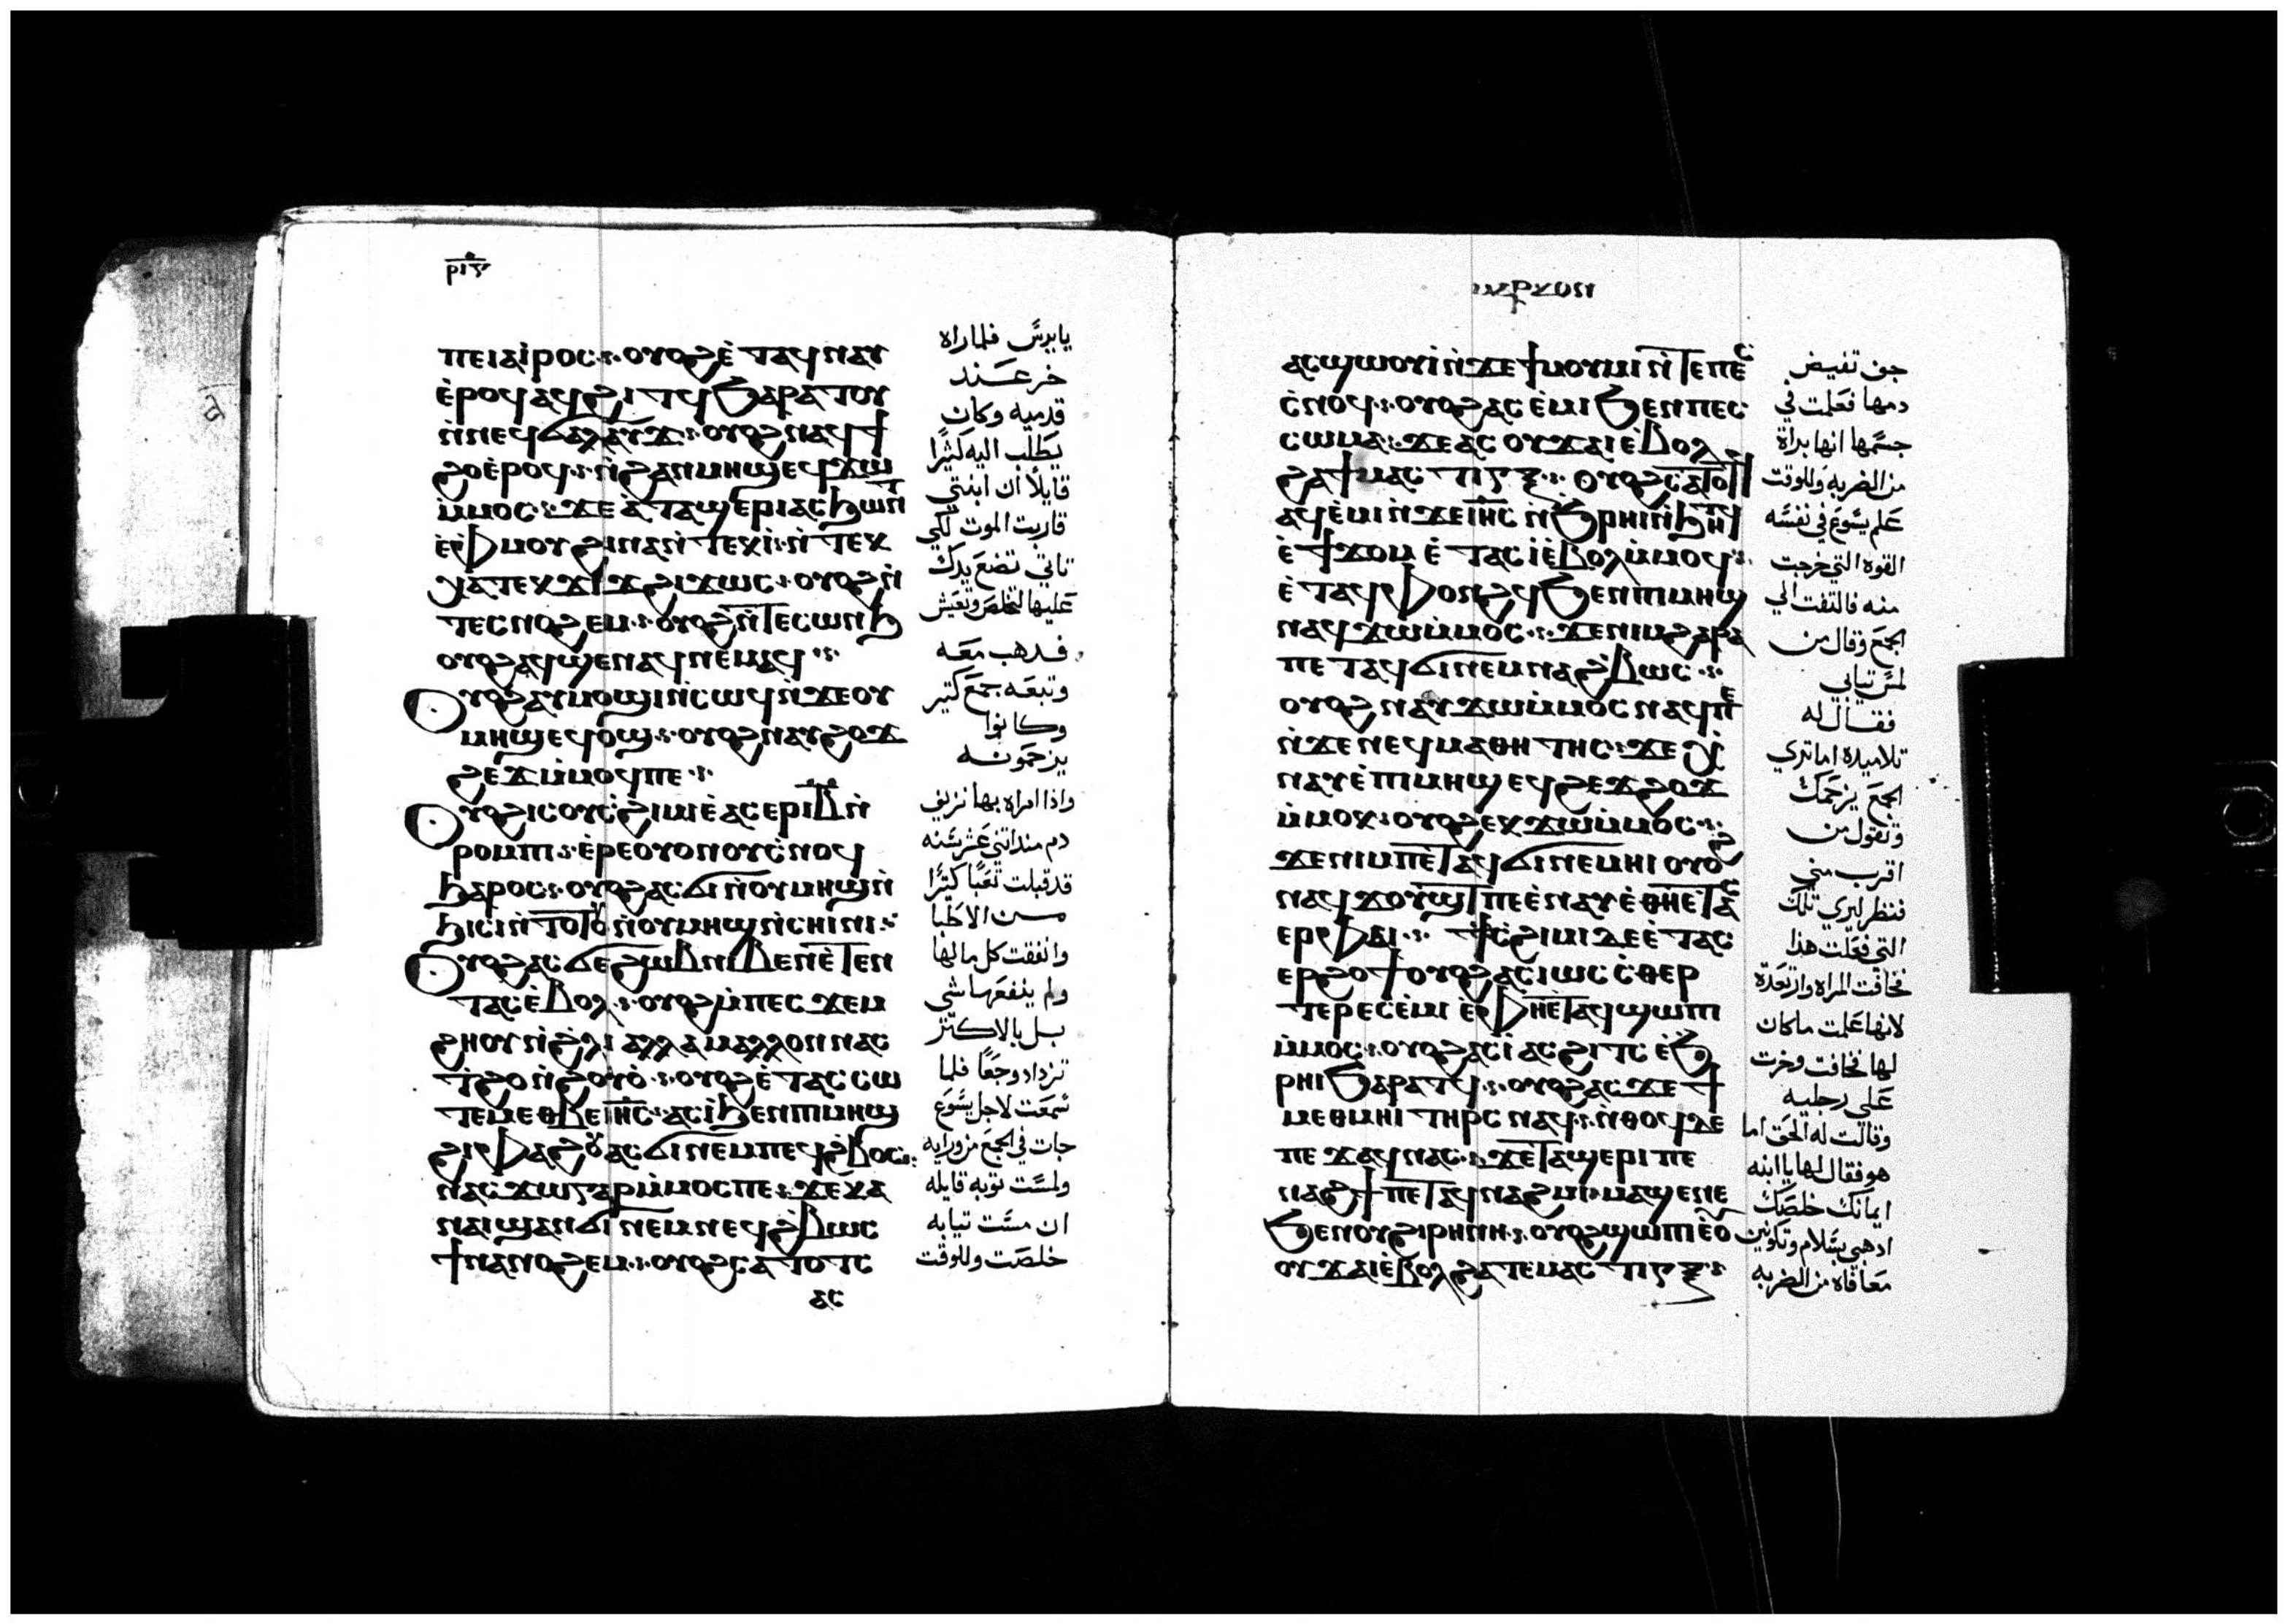 ⲣⲓⲋ
ⲡⲉⲓⲁⲓ̀ⲣⲟⲥ·:· ⲟⲩⲟϩ ⲉ̀ⲧⲁϥⲛⲁⲩ
ⲉ̀ⲣⲟϥ ⲁϥϩⲓⲧϥ ϧⲁⲣⲁⲧⲟⲩ
ⲛ̀ⲛⲉϥϭⲁⲗⲁⲩϫ·:· ⲟⲩⲟϩ ⲛⲁϥϯ
ϩⲟ ⲉ̀ⲣⲟϥ·:· ⲛ̀ϩⲁⲛⲙⲏϣ ⲉϥϫⲱ
ⲙ̀ⲙⲟⲥ·:· ϫⲉ ⲁ̀ ⲧⲁϣⲉⲣⲓ ⲁⲥϧⲱⲛⲧ
ⲉ̀ⲫⲙⲟⲩ ϩⲓⲛⲁ ⲛ̀ⲧⲉⲕⲓ̀·:· ⲛ̀ⲧⲉⲕ
ⲭⲁ ⲧⲉⲕϫⲓϫ ϩⲓϫⲱⲥ·:· ⲟⲩⲟϩ ⲛ̀
ⲧⲉⲥⲛⲟϩⲉⲙ·:· ⲟⲩⲟϩ ⲛ̀ⲧⲉⲥⲱⲛϧ
ⲟⲩⲟϩ ⲁϥϣⲉⲛⲁϥ ⲛⲉⲙⲁϥ·:·
Ⲟⲩⲟϩ ⲁⲩⲙⲟϣⲓ ⲛ̀ⲥⲱϥ ⲛ̀ϫⲉ ⲟⲩ
ⲙⲏϣ ⲉϥⲟ̀ϣ·:· ⲟⲩⲟϩ ⲛⲁⲩϩⲟϫ
ϩⲉϫ ⲙ̀ⲙⲟϥ ⲡⲉ·:·
Ⲟⲩⲟϩ ⲓⲥ ⲟⲩⲥ̀ϩⲓⲙⲓ ⲉ̀ⲁⲥⲉⲣ ⲓⲃ ⲛ̀
ⲣⲟⲙⲡⲓ·:· ⲉ̀ⲣⲉ ⲟⲩⲟⲛ ⲟⲩⲥ̀ⲛⲟϥ
ϧⲁⲣⲟⲥ·:· ⲟⲩⲟϩ ⲁⲥϭⲓ ⲛ̀ⲟⲩⲙⲏϣ ⲛ̀
ϧⲓⲥⲓ ⲛ̀ⲧⲟⲧⲟⲩ ⲛ̀ⲟⲩⲙⲏϣ ⲛ̀ⲥⲏⲓⲛⲓ·:·
Ⲟⲩⲟϩ ⲁⲥϭⲉ ϩⲱⲃ ⲛⲓⲃⲉⲛ ⲉ̀ⲧⲉⲛ
ⲧⲁⲥ ⲉ̀ⲃⲟⲗ·:· ⲟⲩⲟϩ ⲙ̀ⲡⲉⲥϫⲉⲙ
ϩⲏⲟⲩ ⲛ̀ϩ̀ⲗⲓ ⲁⲗⲗⲁ ⲙⲁⲗⲗⲟⲛ ⲛⲁⲥ
ϯϩⲟ ⲛ̀ϩⲟⲩⲟ̀·:· ⲟⲩⲟϩ ⲉ̀ⲧⲁⲥⲥⲱ
ⲧⲉⲙ ⲉⲑⲃⲉ ⲓⲏⲥ·:· ⲁⲥⲓ̀ ϧⲉⲛ ⲡⲓⲙⲏϣ
ϩⲓⲫⲁϩⲟⲩ ⲁⲥϭⲓ ⲛⲉⲙ ⲡⲉϥϩ̀ⲃⲟⲥ·:·
ⲛⲁⲥϫⲱ ⲅⲁⲣ ⲙ̀ⲙⲟⲥ ⲡⲉ·:· ϫⲉ ⲕⲁ
ⲛ ⲁⲓϣⲁⲛϭⲓ ⲛⲉⲙ ⲛⲉϥϩ̀ⲃⲱⲥ
ϯⲛⲁⲛⲟϩⲉⲙ·:· ⲟⲩⲟϩ ⲥⲁⲧⲟⲧⲥ
ⲁⲥ
يايرس فلما راه
خر عند
قدميه وكان
يطلب اليه كثيرًا
قايلًا ان ابنتي
قاربت الموت لكي
تاتي تضع يدك
عليها لتخلص وتعيش
فدهب معه
وتبعه جمع كتير
وكانوا
يزحمونه
واذا امراه بها نزيف
دم مند اتني عشر سنه
قد قبلت تعبًا كتيرًا
من الاطبا
وانفقت كل ما لها
ولم ينفعها شي
بل بالاكتر
تزداد وجعًا فلما
سمعت لاجل يسوع
جات في الجمع من ورايه
ولمست توبه قايله
ان مسست تيابه
خلصت وللوقت
ⲙⲁⲣⲕⲟⲛ
ⲁⲥϣⲱⲟⲩⲓ̀ ⲛ̀ϫⲉ ϯⲙⲟⲩⲙⲓ ⲛ̀ⲧⲉ ⲡⲉⲥ
ⲥ̀ⲛⲟϥ·:· ⲟⲩⲟϩ ⲁⲥⲉ̀ⲙⲓ ϧⲉⲛ ⲡⲉⲥ
ⲥⲱⲙⲁ·:· ϫⲉ ⲁⲥⲟⲩϫⲁⲓ ⲉ̀ⲃⲟⲗ
ϩⲁ ϯⲙⲁⲥⲧⲓⲅⲝ·:· ⲟⲩⲟϩ ⲥⲁⲧⲟⲧϥ
ⲁϥⲉ̀ⲙⲓ ⲛ̀ϫⲉ ⲓⲏⲥ ⲛ̀ϧⲣⲏⲓ ⲛ̀ϧⲏⲧϥ
ⲉ̀ϯϫⲟⲙ ⲉ̀ⲧⲁⲥⲓ̀ ⲉ̀ⲃⲟⲗ ⲙ̀ⲙⲟϥ·:·
ⲉ̀ⲧⲁϥⲫⲟⲛϩϥ ϧⲉⲛ ⲡⲓⲙⲏϣ
ⲛⲁϥϫⲱ ⲙ̀ⲙⲟⲥ·:· ϫⲉ ⲛⲓⲙ ϩⲁⲣⲁ
ⲡⲉⲧⲁϥϭⲓ ⲛⲉⲙ ⲛⲁϩ̀ⲃⲱⲥ·:·
ⲟⲩⲟϩ ⲛⲁⲩϫⲱ ⲙ̀ⲙⲟⲥ ⲛⲁϥ ⲡⲉ
ⲛ̀ϫⲉ ⲛⲉϥⲙⲁⲑⲏⲧⲏⲥ·:· ϫⲉ ⲭ̀
ⲛⲁⲩ ⲉ̀ⲡⲓⲙⲏϣ ⲉϥϩⲉϫϩⲟϫ
ⲙ̀ⲙⲟⲕ·:· ⲟⲩⲟϩ ⲉⲕϫⲱ ⲙ̀ⲙⲟⲥ·:·
ϫⲉ ⲛⲓⲙ ⲡⲉⲧⲁϥϭⲓ ⲛⲉⲙⲏⲓ ⲟⲩⲟϩ
ⲛⲁϥϫⲟⲩϣⲧ ⲡⲉ ⲉ̀ⲛⲁⲩ ⲉ̀ⲑⲏⲉⲧⲁⲥ
ⲉⲣ ⲫⲁⲓ·:· ϯⲥ̀ϩⲓⲙⲓ ⲇⲉ ⲉ̀ⲧⲁⲥ
ⲉⲣϩⲟϯ ⲟⲩⲟϩ ⲁⲥⲓⲱⲥ ⲥ̀ⲑⲉⲣ
ⲧⲉⲣ ⲉⲥⲉ̀ⲙⲓ ⲉ̀ⲫⲏⲉⲧⲁϥϣⲱⲡⲓ
ⲙ̀ⲙⲟⲥ·:· ⲟⲩⲟϩ ⲁⲥⲓ̀ ⲁⲥϩⲓⲧⲥ ⲉ̀ϧ
ⲣⲏⲓ ϧⲁⲣⲁⲧϥ·:· ⲟⲩⲟϩ ⲁⲥϫⲉ ϯ
ⲙⲉⲑⲙⲏⲓ ⲧⲏⲣⲥ ⲛⲁϥ·:· ⲛ̀ⲑⲟϥ ⲇⲉ
ⲡⲉϫⲁϥ ⲛⲁⲥ·:· ϫⲉ ⲧⲁϣⲉⲣⲓ ⲡⲉ
ⲛⲁϩϯ ⲡⲉⲧⲁϥⲛⲁϩⲙⲓ ⲙⲁϣⲉ ⲛⲉ
ϧⲉⲛ ⲟⲩϩⲓⲣⲏⲛⲏ·:· ⲟⲩⲟϩ ϣⲱⲡⲓ ⲉ̀ⲟ
ⲟⲩϫⲁⲓ ⲉ̀ⲃⲟⲗ ϩⲁ ⲧⲉⲙⲁⲥⲧⲓⲅⲝ·:·
جف تفيض
دمها فعلت في
جسمها انها براة
من الضربه وللوقت
علم يسوع في نفسه
القوه التي خرجت
منه فالتفت الي
الجمع وقال من
لمس تيابي
فقال له
تلاميده اما تري
الجمع يزحمك
وتقول من
اقرب مني
فنظر ليري تلك
التي فعلت هدا
فخافت المراه وارتعدة
لانها علمت ما كان
لها فخافت وخرت
علي رجليه
وقالت له الحق اما
هو فقال لها يا ابنه
ايمانك خلصك
ادهبي بسلام وتكونين
معافاه من الضربه